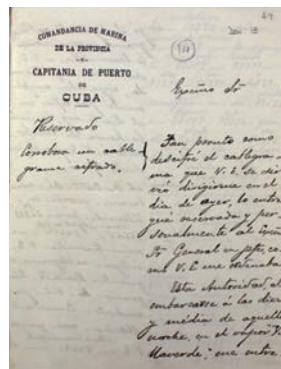 COMANDANCIA DE MARINA
DE LA PROVINCIA
Y
CAPITANIA DE PUERTO
DE
CUBA
Reservado
Corrobora un cable-
grama cifrado.
Excmo Sr
Tan pronto como
descifré el cablegra-
ma que V. E. se sir-
vió dirigirme en el
dia de ayer, lo entre-
gué reservada y per-
sonalmente al Excmo
Sr General en jefe, co-
mo V. E. me ordenaba.
Esta Autoridad, al
embarcarse á las diez
y média de aquella
noche, en el vapor Vi-
llaverde; me entre